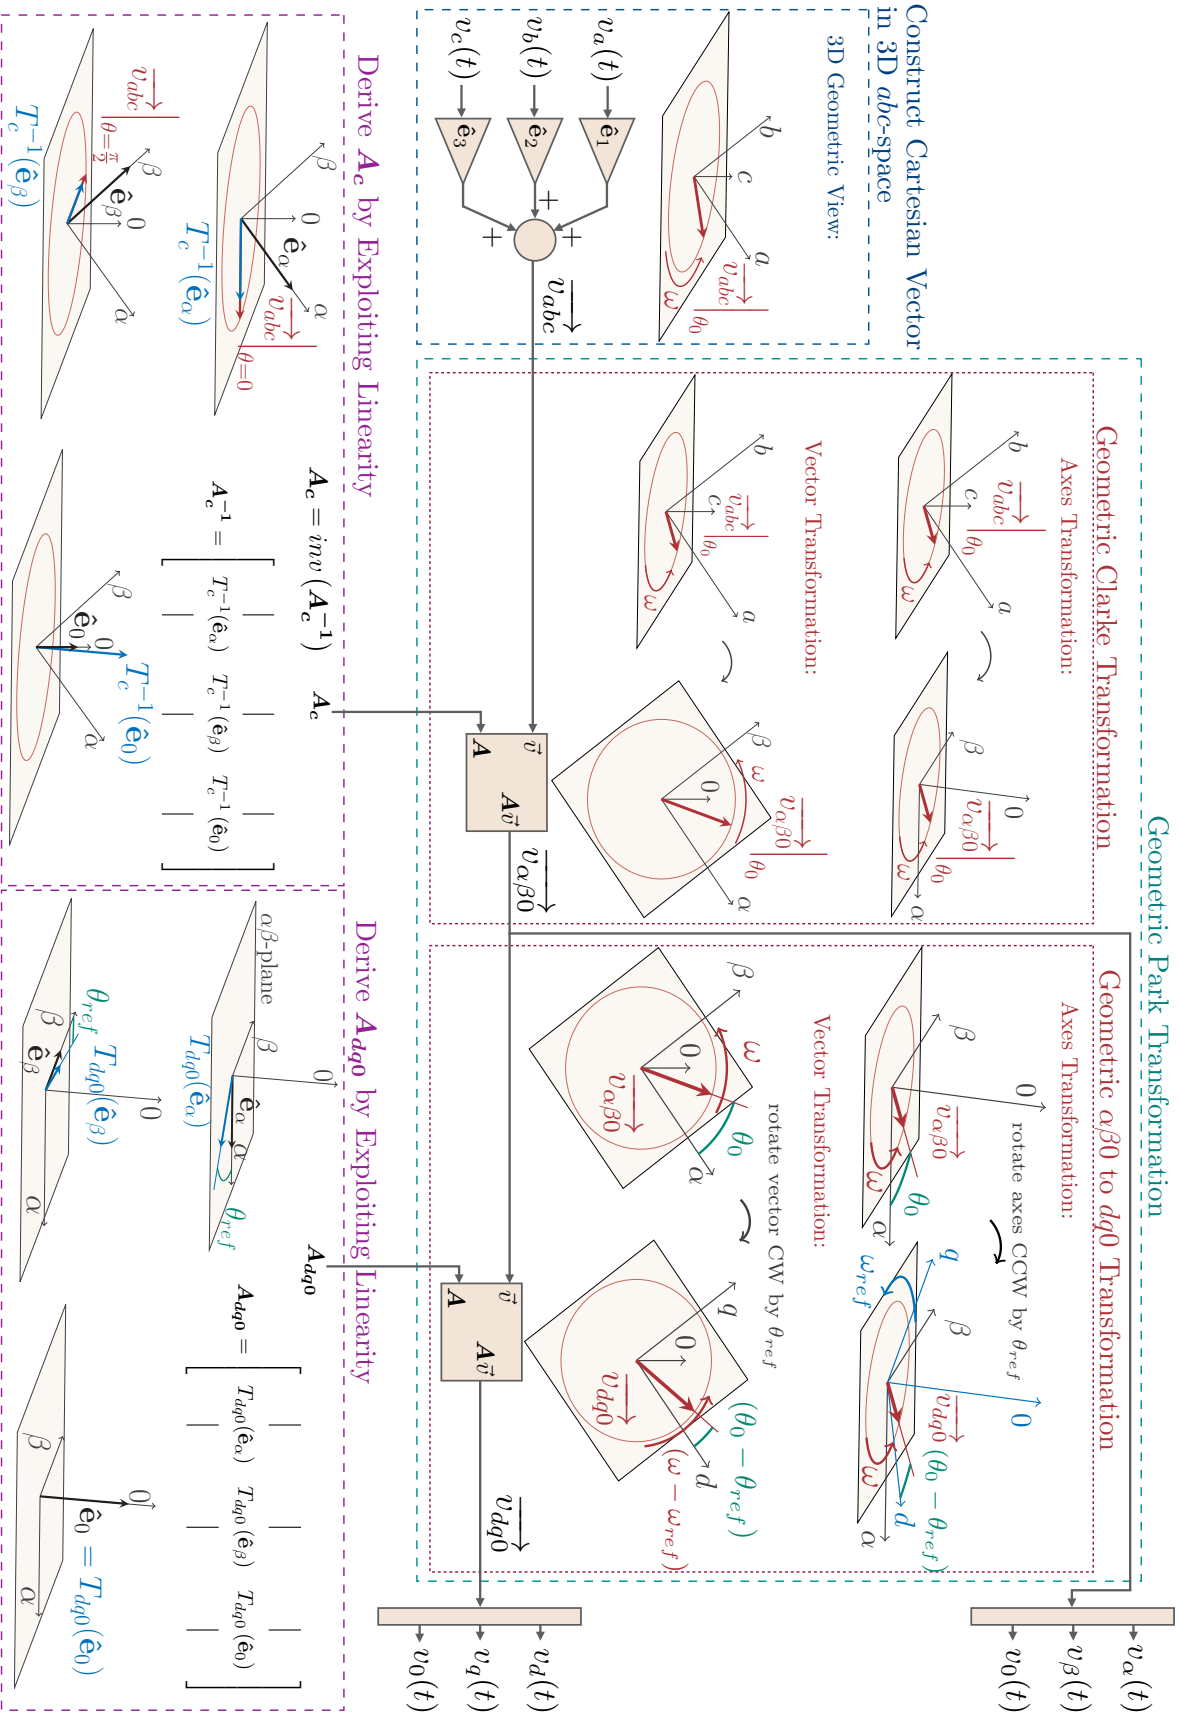 Construct Cartesian Vector
in 3D abc-space
3D Geometric View:
b
c
a
v_abc
θ₀
ω
v_a(t)
v_b(t)
v_c(t)
ê₁
ê₂
ê₃
+
+
+
v_abc
Geometric Park Transformation
Geometric Clarke Transformation
Axes Transformation:
b
c
a
v_abc
θ₀
ω
β
0
α
v_αβ0
θ₀
ω
Vector Transformation:
b
c
a
v_abc
θ₀
ω
β
0
α
ω
v_αβ0
θ₀
v⃗
A
Av⃗
v_αβ0
Geometric αβ0 to dq0 Transformation
Axes Transformation:
rotate axes CCW by θ_ref
β
0
α
v_αβ0
θ₀
ω
q
β
0
d
α
ω_ref
v_dq0
(θ₀ − θ_ref)
ω
Vector Transformation:
rotate vector CW by θ_ref
β
0
α
ω
v_αβ0
θ₀
q
0
d
v_dq0
(θ₀ − θ_ref)
(ω − ω_ref)
v⃗
A
Av⃗
v_dq0
v_α(t)
v_β(t)
v_0(t)
v_d(t)
v_q(t)
v_0(t)
Derive A_c by Exploiting Linearity
β
0
α
ê_α
v_abc
θ=0
T_c⁻¹(ê_α)
v_abc
θ=π/2
β
0
α
ê_β
T_c⁻¹(ê_β)
A_c = inv(A_c⁻¹)
A_c
A_c⁻¹ =
T_c⁻¹(ê_α) T_c⁻¹(ê_β) T_c⁻¹(ê_0)
β
0
α
ê_0
T_c⁻¹(ê_0)
Derive A_dq0 by Exploiting Linearity
αβ-plane
β
0
α
ê_α
θ_ref
T_dq0(ê_α)
θ_ref
T_dq0(ê_β)
β
0
α
ê_β
A_dq0
A_dq0 =
T_dq0(ê_α) T_dq0(ê_β) T_dq0(ê_0)
β
0
α
ê_0 = T_dq0(ê_0)